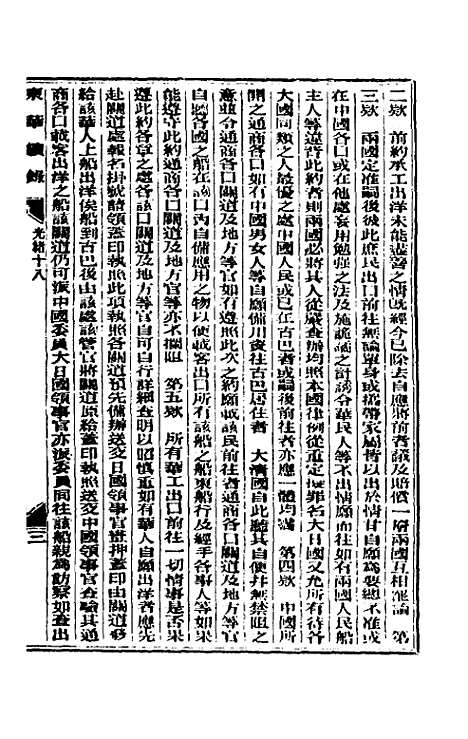 二款　前約承工出洋未能盡善之情旣經今已除去自應將前者議及賠償一層兩國互相准論　第
三款　兩國定准嗣後彼此庶民出口前往無論單身或攜帶家屬皆以出於情甘自願爲要總不准或
在中國各口或在他處妄用勉强之法及施詭譎之計誘令華民人等不出情願而往如有兩國人民船
主人等違背此約者則兩國必將其人從嚴查辦均照本國律例從重定擬罪名大日國又允所有待各
大國同類之人最優之處中國人民或已在古巴者或嗣後前往者亦應一體均霑　第四款　中國所
開之通商各口如有中國男女人等自願備川資往古巴居住者　大淸國自此聽其自便幷無禁阻之
意並令通商各口關道及地方等官如有遵照此次之約願載該民前往者通商各口關道及地方等官
自照各國之船在該口內自備應用之物以便載客出口所有該船之船東船行及經手各事人等如果
能遵守此約通商各口關道及地方等官等亦不攔阻　第五款　所有華工出口前往一切情事是否果
遵此約各章之處各該口關道及地方等官自可自行詳細查明以昭愼重如有華人自願出洋者應先
赴關道處報名掛號請領蓋印執照此項執照各關道預先備辦送交日國領事官畫押蓋印由關道發
給該華人上船出洋俟船到古巴後由該處該管官將關道原給蓋印執照送交中國領事官查驗其通
商各口載客出洋之船該關道仍可派中國委員大日國領事官亦派委員同往該船親爲訪察如查出
東華續錄　光緒十八　三